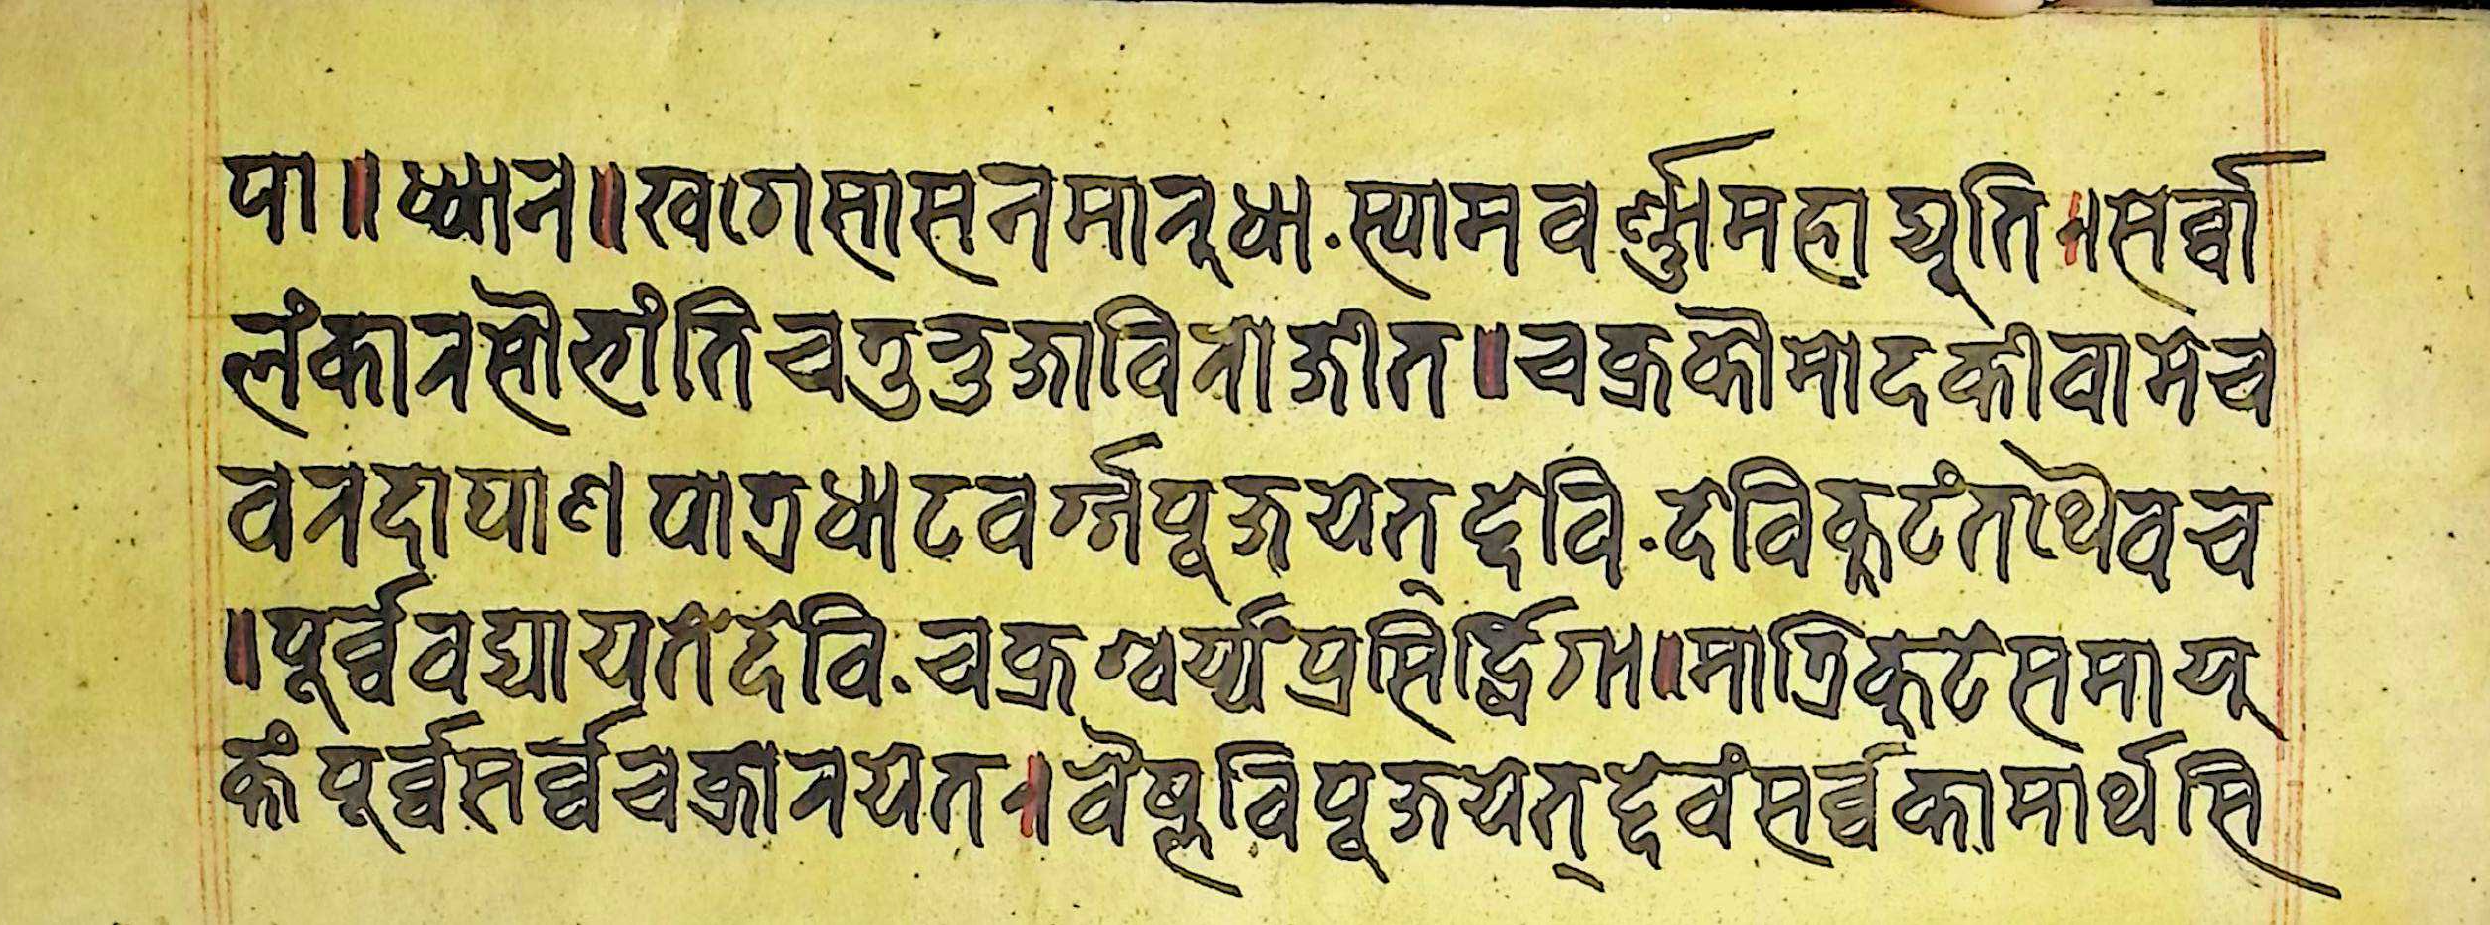 पा॥ध्यान॥खगेसासनमारूधा.स्यामवर्ण्णामहाद्यूति॥सर्व्वा
लंकारसौभांतिचतुभुजाविराजीत॥चक्रकौमादकीवामेच
वरदापाणपात्रधाटवर्ग्गपूजयेत्देवि.देविकूटंतथैवच
॥पूर्व्ववद्यायतेंदेवि.चक्रेश्वर्य्यैप्रसिर्द्धिगा॥मात्रिकूटंसमायू
क्तंपूर्व्वसर्व्वचक्रीनयेत॥वैष्णविपूजयेत्देवंसर्व्वकामार्थसि